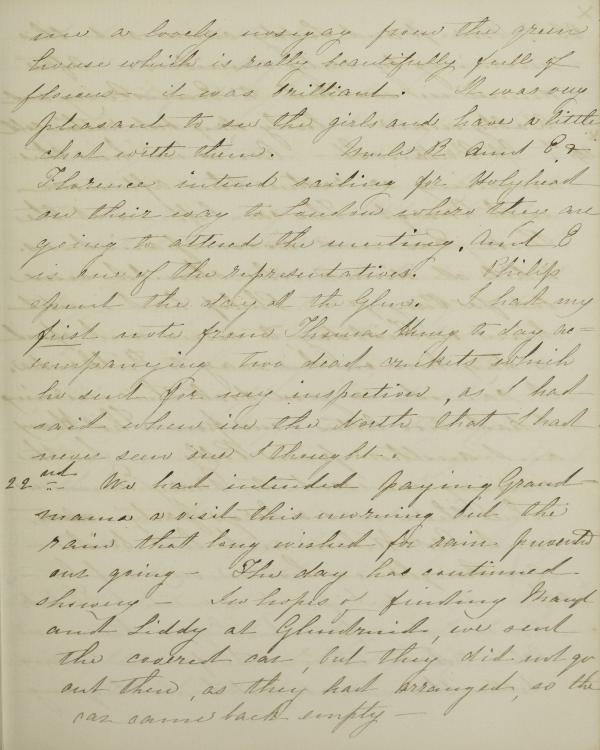 me a lovely nosegay from the green
house which is really beautifully full of
flowers - it was brilliant. It was very
pleasant to see the girls and have a little
chat with them. Uncle R Aunt E &
Florence intend sailing for Holyhead
on their way to London where they are
going to attend the meeting. Aunt E
is one of the representatives. Philip
spent the day at the Glen. I had my
first note from Thomas to day ac=
companying two dead crickets which
he sent for my inspection, as I had
said when in the North that I had
never seen one I thought -.
22nd We had intended paying Grand-
mama a visit this morning but the
rain that long wished for rain prevented
our going - The day has continued
showery - In hopes of finding
and Liddy at Glendruid, we sent
the covered car, but they did not go
out then, as they had arranged, so the
car came back empty -